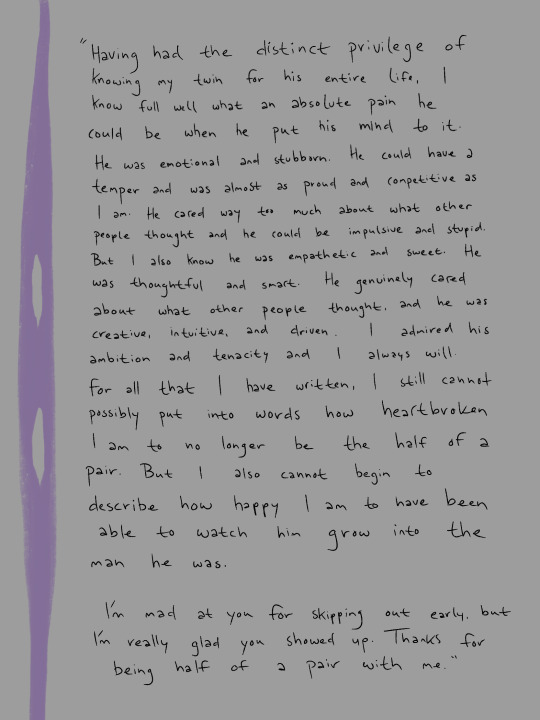 "Having had the distinct privilege of
knowing my twin for his entire life, I
know full well what an absolute pain he
could be when he put his mind to it.
He was emotional and stubborn. He could have a
temper and was almost as proud and competitive as
I am. He cared way too much about what other
people thought and he could be impulsive and stupid.
But I also know he was empathetic and sweet. He
was thoughtful and smart. He genuinely cared
about what other people thought, and he was
creative, intuitive, and driven. I admired his
ambition and tenacity and I always will.
For all that I have written, I still cannot
possibly put into words how heartbroken
I am to no longer be the half of a
pair. But I also cannot begin to
describe how happy I am to have been
able to watch him grow into the
man he was.
I'm mad at you for skipping out early, but
I'm really glad you showed up. Thanks for
being half of a pair with me."